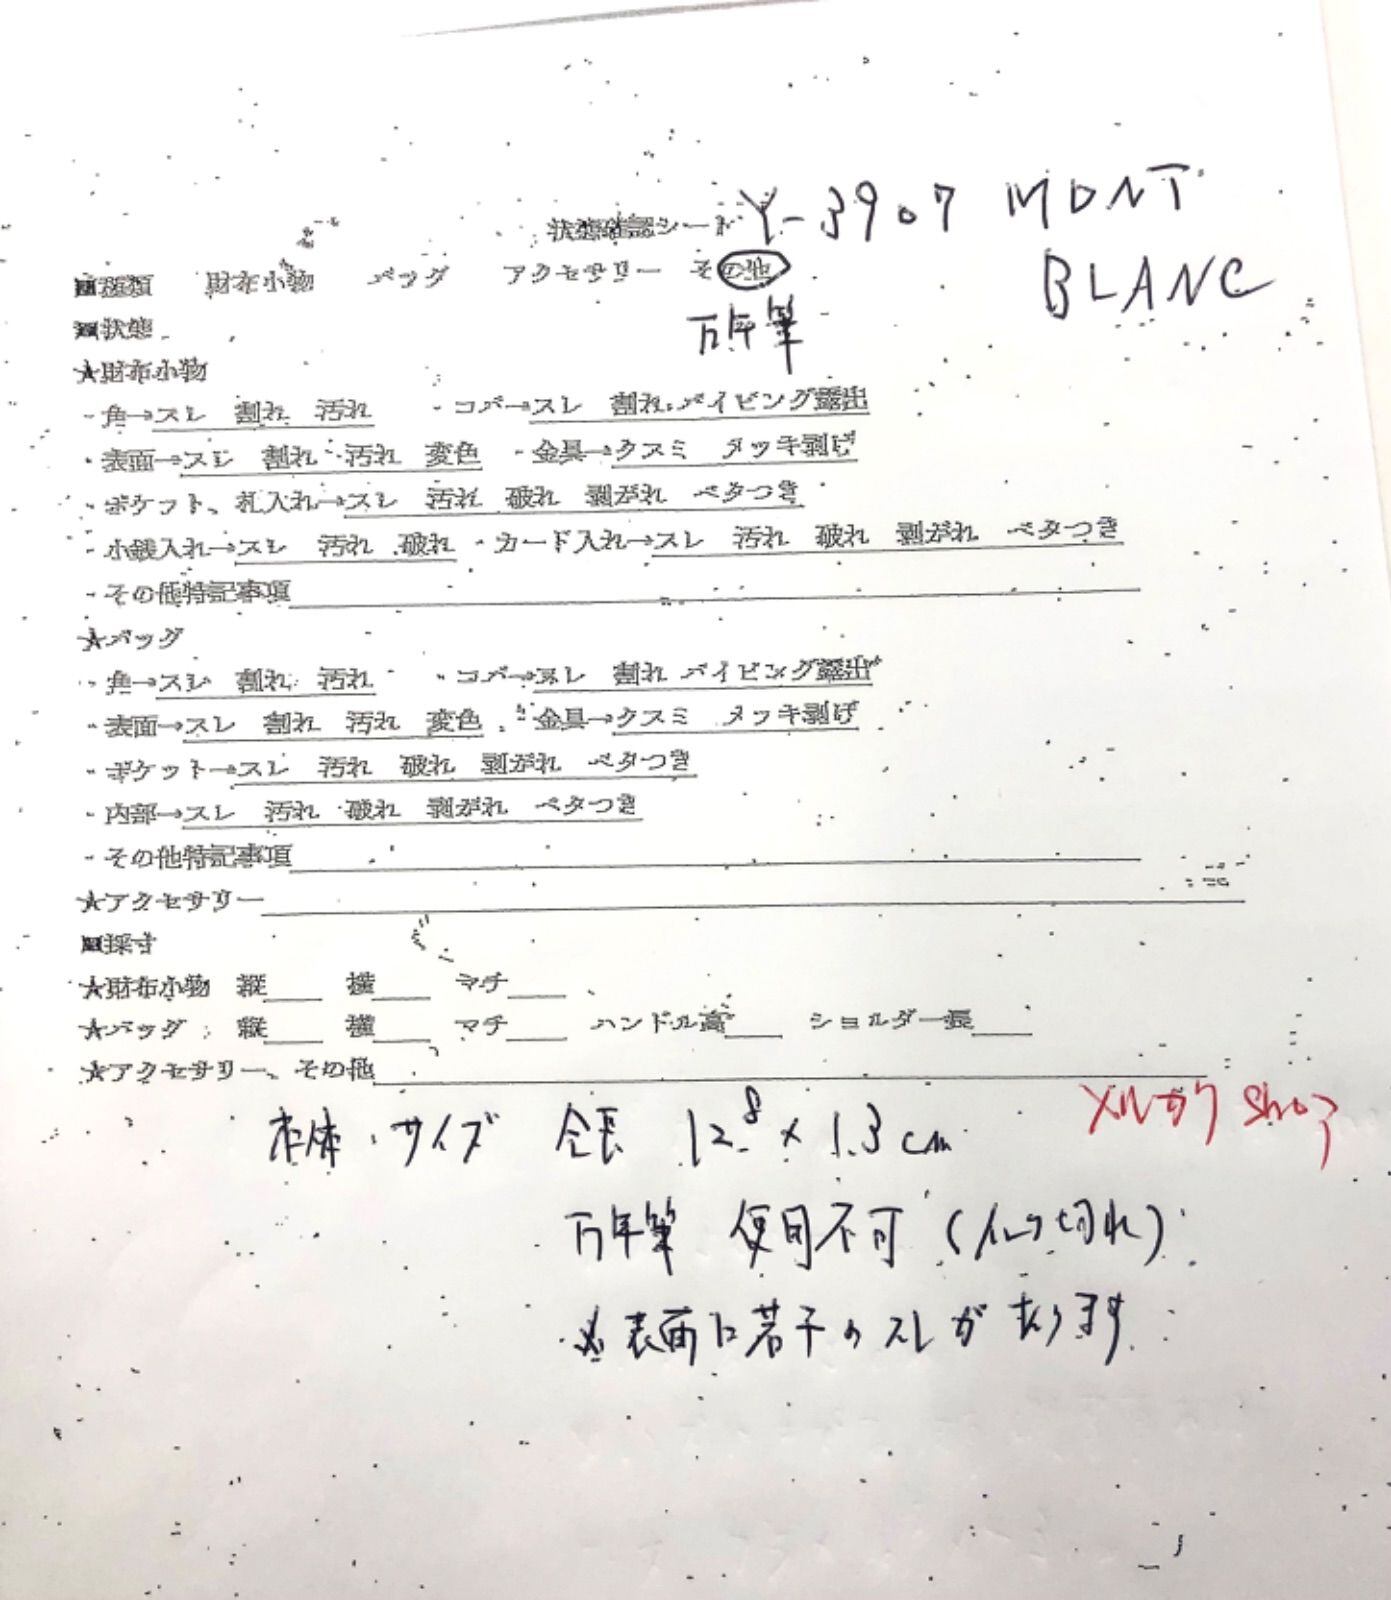 状態確認シート Y-3907 MONT
BLANC
■種類 財布小物 バッグ アクセサリー その他
万年筆
■状態
★財布小物
・角→スレ 割れ 汚れ ・コバ→スレ 割れ パイピング露出
・表面→スレ 割れ 汚れ 変色 ・金具→クスミ メッキ剥げ
・ポケット、札入れ→スレ 汚れ 破れ 剥がれ ベタつき
・小銭入れ→スレ 汚れ 破れ ・カード入れ→スレ 汚れ 破れ 剥がれ ベタつき
・その他特記事項
★バッグ
・角→スレ 割れ 汚れ ・コバ→スレ 割れ パイピング露出
・表面→スレ 割れ 汚れ 変色 ・金具→クスミ メッキ剥げ
・ポケット→スレ 汚れ 破れ 剥がれ ベタつき
・内部→スレ 汚れ 破れ 剥がれ ベタつき
・その他特記事項
★アクセサリー
■採寸
★財布小物 縦 横 マチ
★バッグ 縦 横 マチ ハンドル高 ショルダー長
★アクセサリー、その他
メルカリ Shop
本体・サイズ 全長 12.8×1.3cm
万年筆 使用不可(インク切れ)
※表面に若干のスレがあります